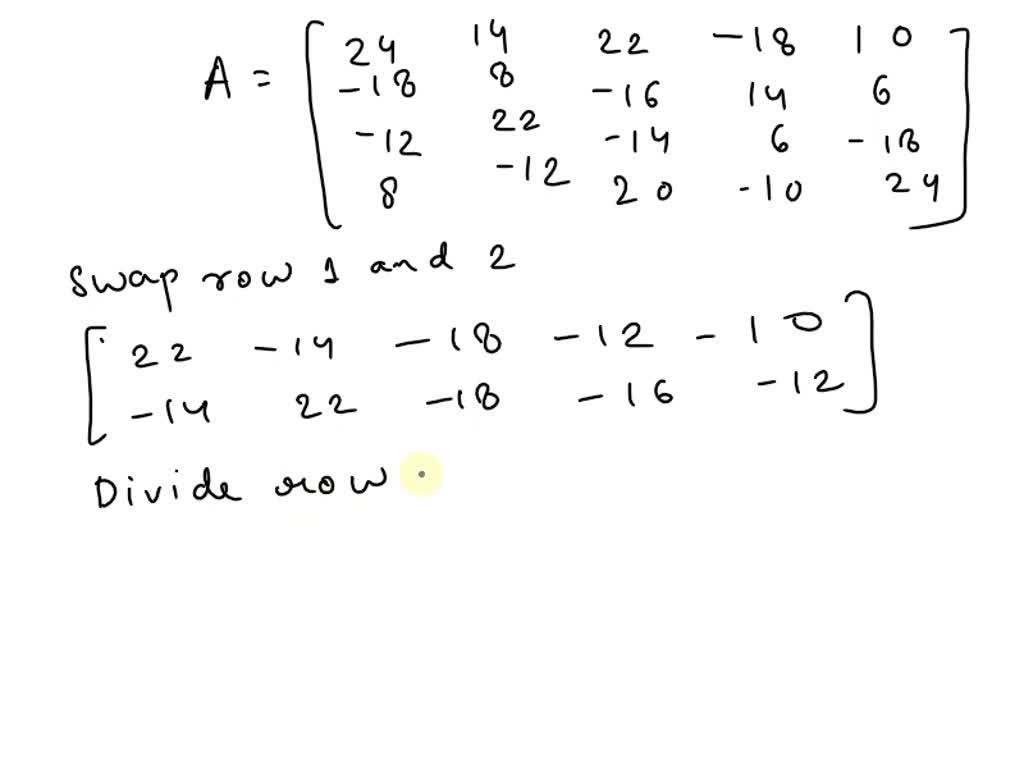 24 14 22 -18 10
A = -18 8 -16 14 6
-12 22 -14 6 -18
8 -12 20 -10 24
Swap row 1 and 2
22 -14 -18 -12 -10
-14 22 -18 -16 -12
Divide row